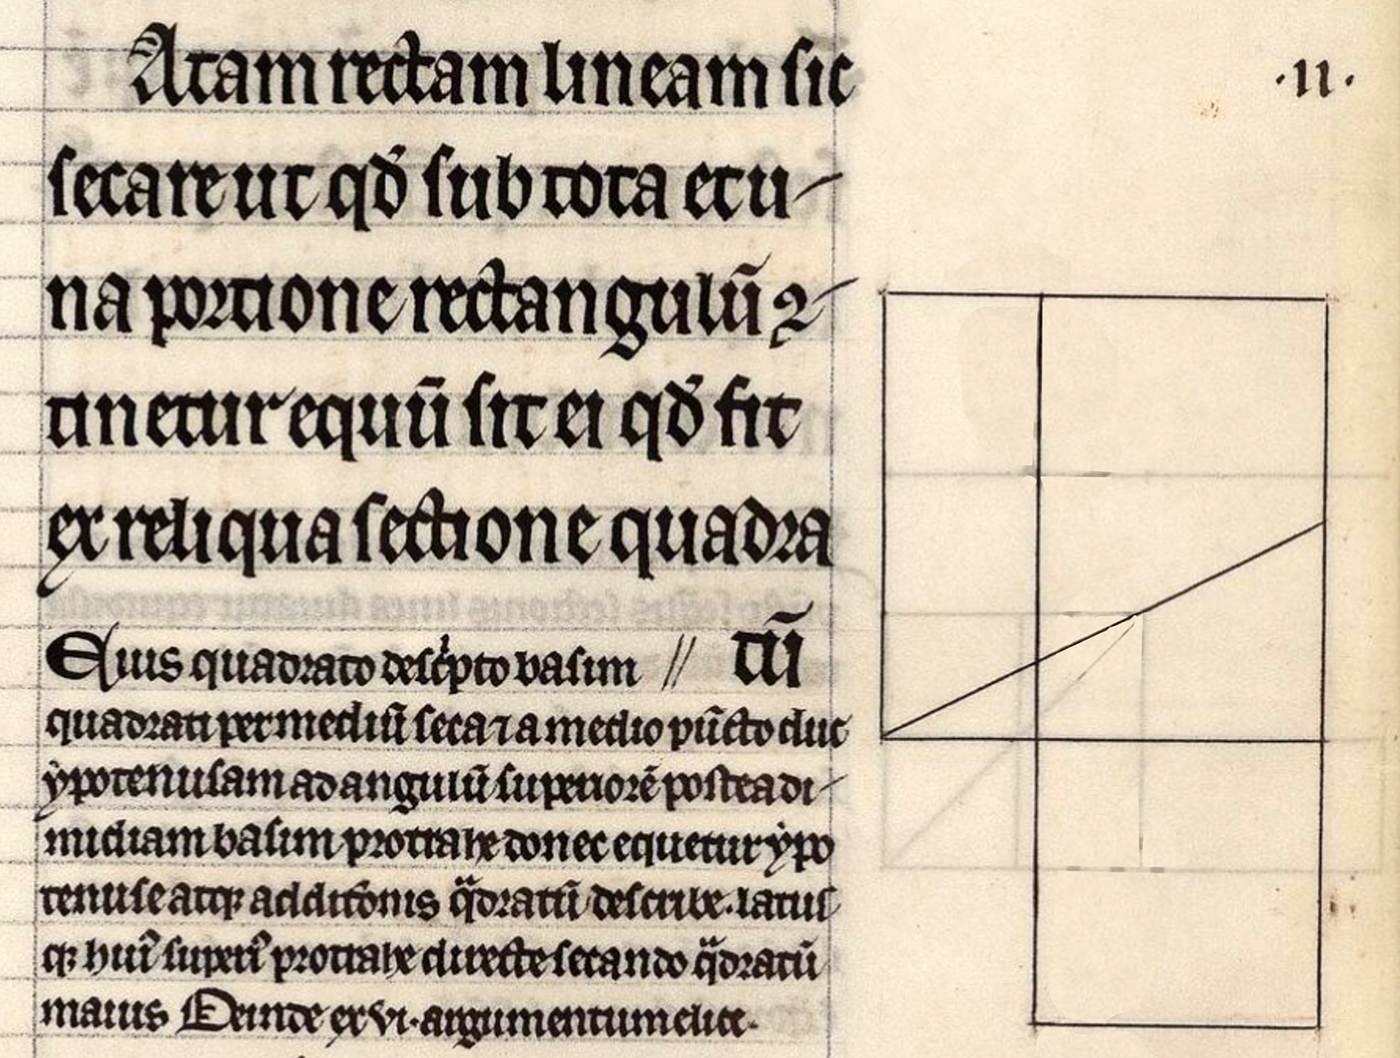 Atam rectam lineam sic
·11·
secare ut qđ sub tota et u
na portione rectangulū ꝯ
tinetur equū sit ei qđ fit
ex reliqua sectione quadra
tū
Eius quadrato descͥpto basim //
quadrati per mediū seca ⁊ a medio pūcto duc
ypotenusam ad angulū superiorē postea di
midiam basim protrahe donec equetur ypo
tenuse atqꝫ additōnis qͣdratū describe. latus
qꝫ huiꝰ superiꝰ protrahe directe secando qͣdratū
maius Deinde ex vi. argumentum elice.